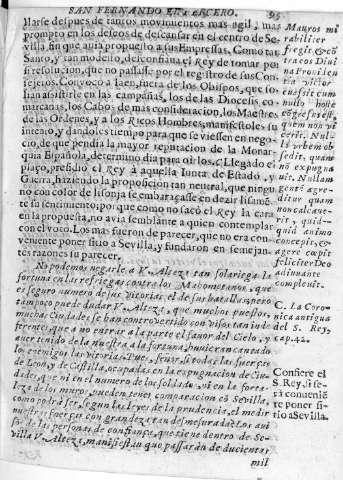 SAN FERNANDO EL TERCERO. 95
llarse despues de tantos movimientos mas agil, mas
prompto en los deseos de descansar en el centro de Se-
villa fin que aura propuesto a sus Empressas. Como tan
Santo, y tan modesto, desconfiava el Rey de tomar por
si resolucion, que no passasse por el registro de sus Con-
sejeros. Convocò a Iaen, fuera de los Obispos, que so-
lian assistirle en las campañas, los de las Diocesis co-
marcanas, los Cabos de mas consideracion, los Maestres
de las Ordenes, y a los Ricos Hombres, manifestòles su
intento, y dandoles tiempo para que se viessen en nego-
cio, de que pendia la mayor reputacion de la Monar-
quia Española, determinò dia para oirlos. Llegado el
plaço, presidiò el Rey à aquella Iunta de Estado, y
Guerra, haziendo la proposicion tan neutral, que ningu
no con color de lisonja se embaraçasse en dezir lisamẽ-
te su sentimiento, porque como no sacò el Rey la cara
en la propuesta, no avia semblante a quien contemplar
con el voco. Los mas fueron de parecer, que no era con-
veniente poner sitio a Sevilla, y fundaron en semejan-
tes razones su parecer.
No podemos negarle a V. Alteza tan solariega la
fortuna en las refriegas contra los Mahometanos, que
es seguro numero de sus vitorias, el de sus batallas, pero
tampoco puede dudar V. Alteza, que muchos pueblos,
muchas Ciudades se han controvertido con visos tan indi
ferentes, que a no entrar a la parte el favor del Cielo, y
aver tenido de la nuestra a la fortuna, huvieran cantado
los enemigos las vitorias. Pues, señor, si todas las fuerças
de Leon, y de Castilla, ocupadas en la expugnacion de Ciu-
dades, que ni en el numero de los soldados, ni en la forta-
leza de los muros, pueden tener comparacion cõ Sevilla:
como podrà ser, segun las leyes de la prudencia, el medir
nuestras fuerças con grandeza tan desmesurada? Los avi
sos de las personas de confiança, que tiene dentro de Se-
villa V. Alteza, manifiestan que passaràn de ducientas
mil
Mauros mi
feliciter
fregit, & cõ
tra eos Diui
na Prouidentia
Victor
euasit cum
nullo hoste
congressus est,
quem non vi-
cerit. Nul-
lã vrbem ob
sedit, quam
no expugna
uit. Nullam
gentẽ agre-
ditur quam
non calcaue-
rit, quid-
quid animo
concepit, &
agere cœpit
feliciter Deo
adiuuante
compleuit.
C. La Coro-
nica antigua
del S. Rey,
cap. 42.
Confiere el
S. Rey, si se-
rà convenie
te poner si-
tio a Sevilla.